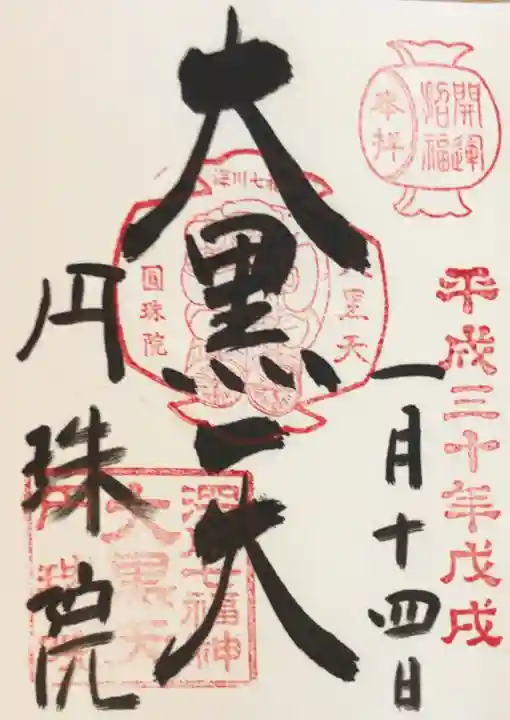 開運
招福
奉拝
平成三十年戊戌
一月十四日
深川七福
大黒天
圓珠院
大黒天
深川七福神
大黒天
円珠院
円珠院